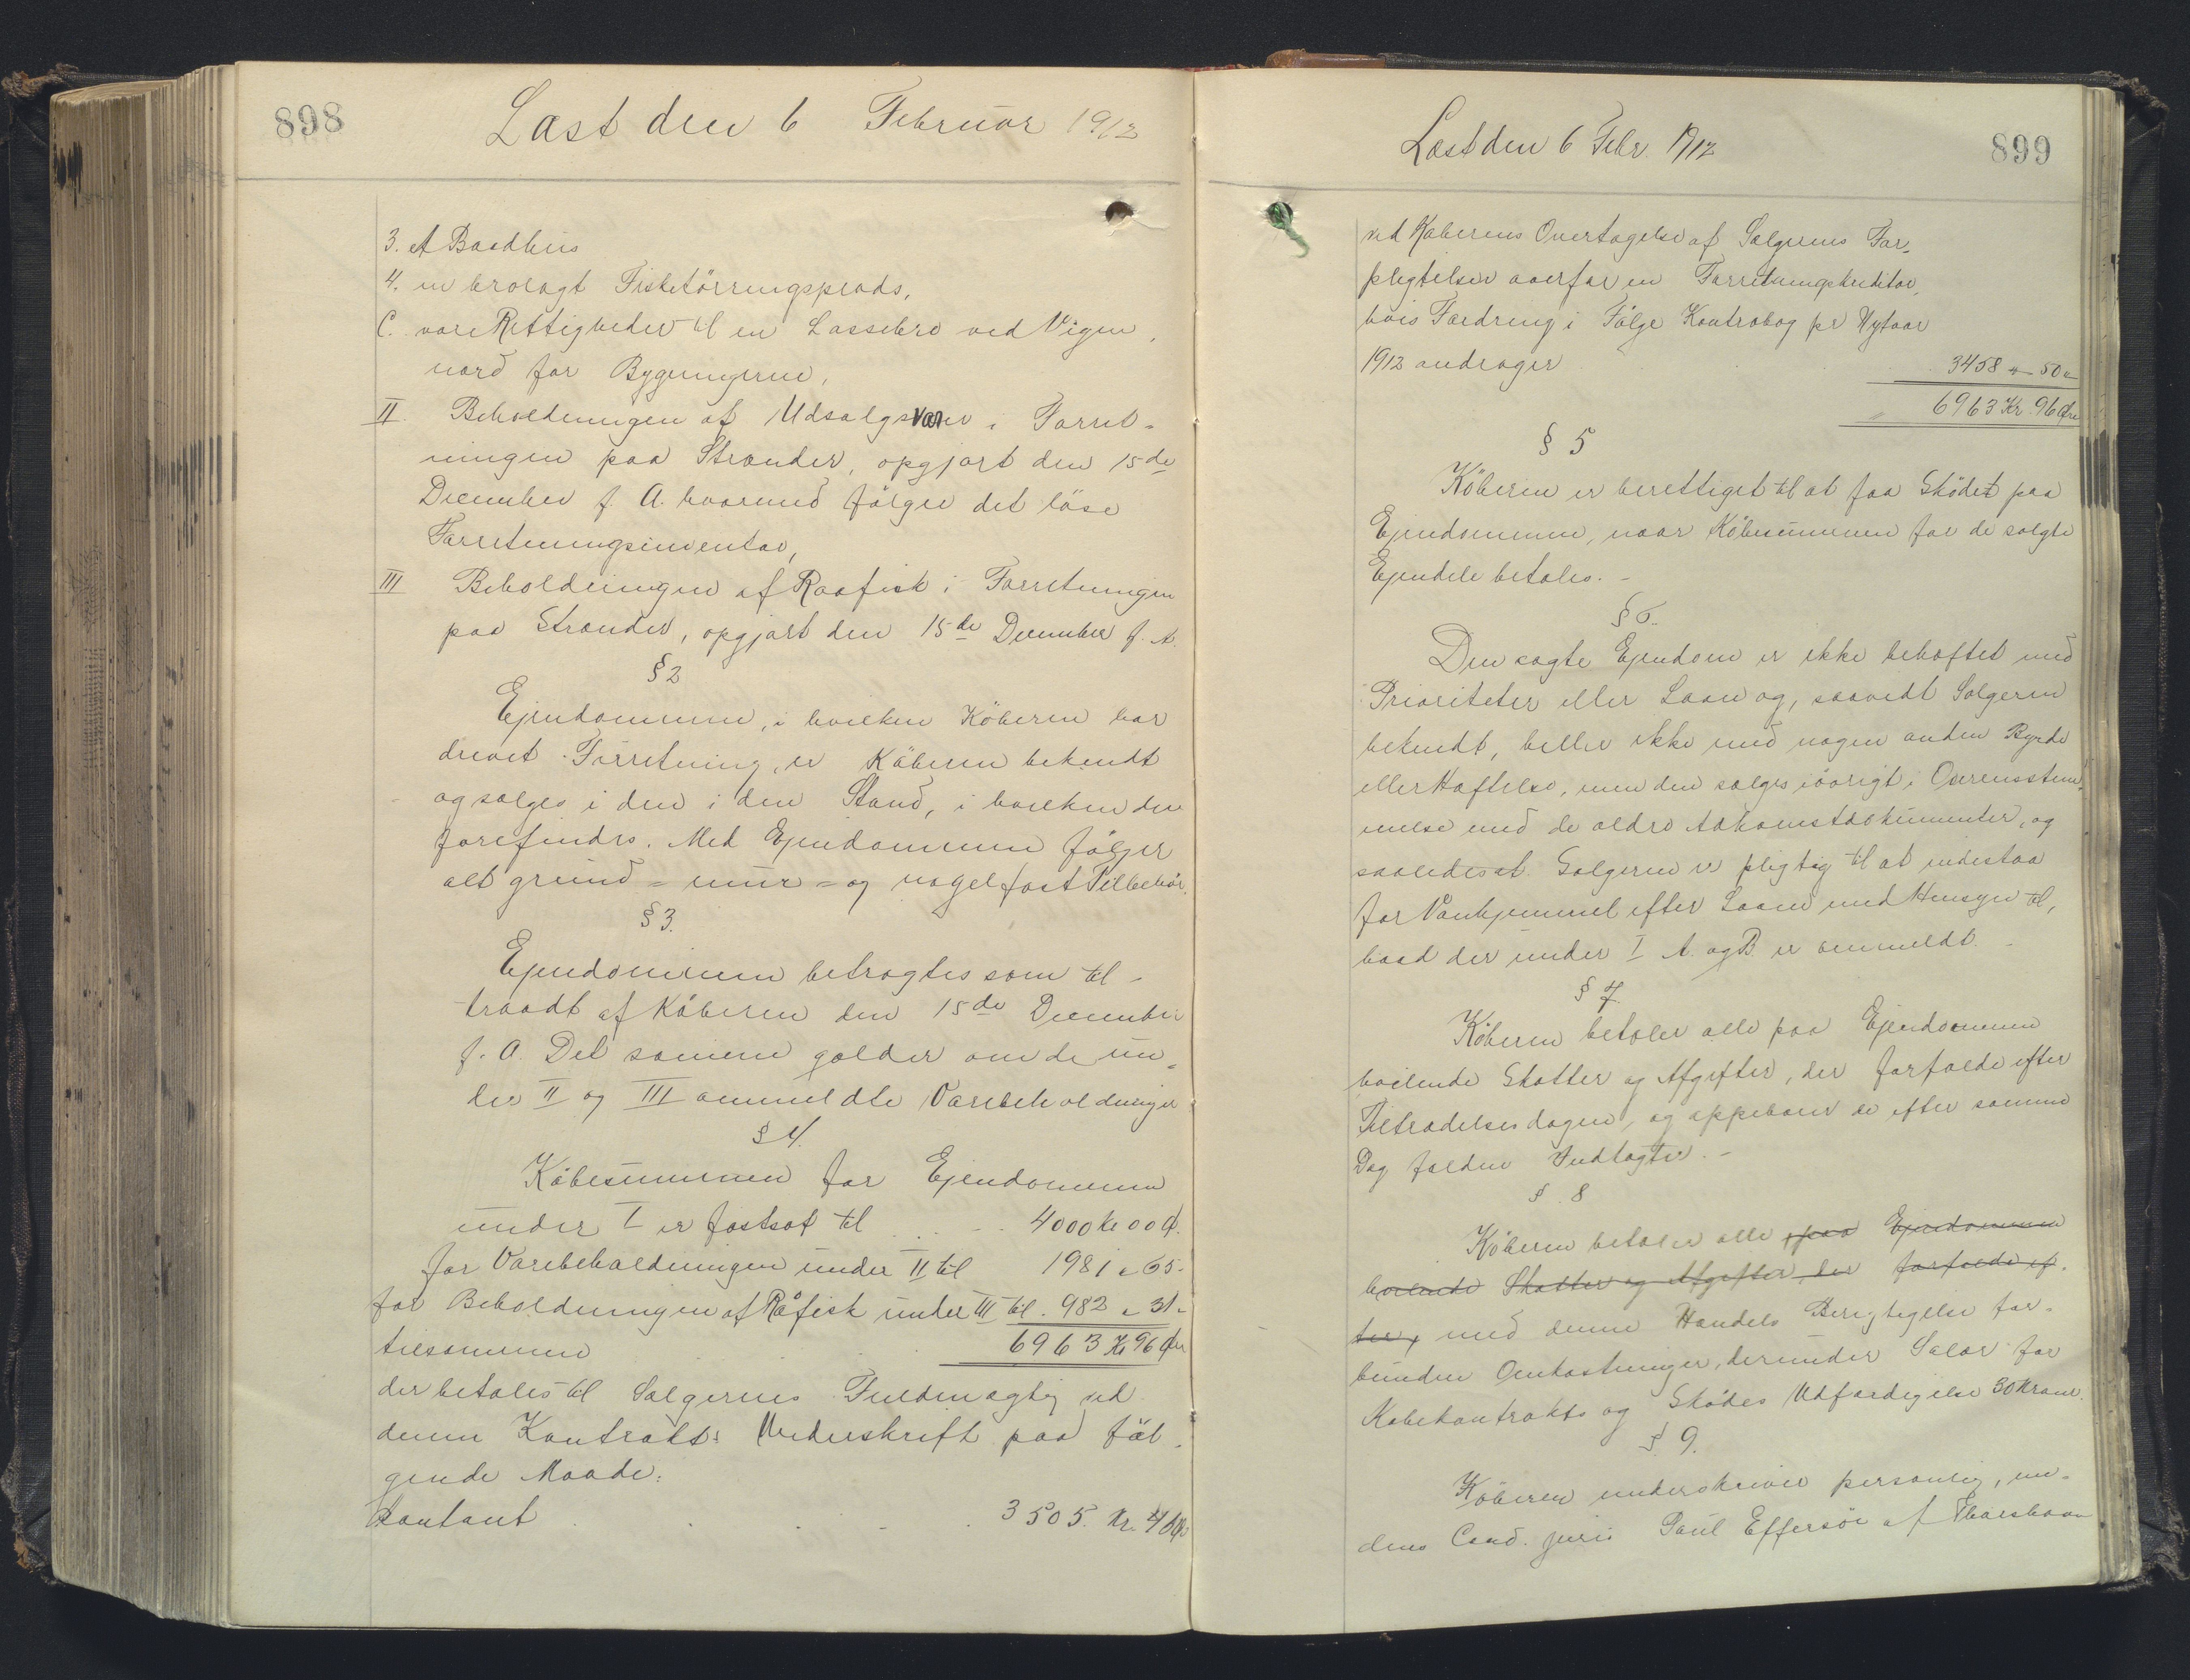 898
Læst den 6 Februar 1912
3. et Baadhus
4. en brolagt Fisketörringsplads,
C. vore Rettigheder til en Lossebro ved Vigen,
nord for Bygningerne,
II. Beholdningen af Udsalgsvarer i Forret-
ningen paa Strænder, opgjort den 15de
December f. A. hvormed følger det löse
Forretningsinventar,
III Beholdningen af Raafisk i Forretningen
paa Strænder, opgjort den 15de December f. A.
§ 2
Ejendommen, i hvilken Köberen har
drevet Forretning, er Köberen bekendt
og sælges i den i den Stand, i hvilken den
forefindes. Med Ejendommen følger
alt grund- mur- og nagelfast Tilbehör.
§ 3.
Ejendommen betragtes som til-
traadt af Köberen den 15de December
f. A. Det samme gælder om de un-
der II og III ommeldte Varebeholdninger
§ 4.
Köbesummen for Ejendommen
under I er fastsat til 4000 Kr 00 Ø.
for Varebeholdningen under II til 1981 " 65 "
for Beholdningen af Råfisk under III til 982 " 31 "
tilsammen 6963 Kr 96 Øre
der betales til Sælgernes Fuldmægtig ved
denne Kontrakts Underskrift paa föl-
gende Maade:
Kontant 3505. Kr. 46 Ø
Læst den 6 Febr. 1912
899
ved Køberens Overtagelse af Sælgerens For-
pligtelser overfor en Forretningskreditor,
hvis Fordring i Følge Kontrabog pr Nytaar
1912 andrager 3458 " 50 "
6963 Kr 96 Øre
§ 5
Köberen er berettiget til at faa Sködet paa
Ejendommen, naar Köbesummen for de solgte
Ejendele betales. -
§ 6.
Den sogte Ejendom er ikke behæftet med
Prioriteter eller Laan og, saavidt Sælgeren
bekendt, heller ikke med nogen anden Byrde
eller Hæftelse, men den sælges iövrigt i Overensstem-
melse med de ældre Adkomstdokumenter, og
saaledes at Sælgeren er pligtig til at indestaa
for Vanhjemmel efter Loven med Hensyn til,
hvad der under I A. og B. er ommeldt. -
§ 7.
Köberen betaler alle paa Ejendommen
hvilende Skatter og Afgifter, der forfalde efter
Tiltrædelsesdagen, og oppebærer de efter samme
Dag faldne Indtægter. -
§. 8
Köberen betaler alle paa Ejendommen
hvilende Skatter og Afgifter, der forfalde ef-
ter, med denne Handels Berigtigelse for-
bundne Omkostninger, derunder Salær for
Købekontrakts og Sködes Udfærdigelse 30 Kroner.
§ 9.
Köberen underskriver personlig, me-
dens Cand. juris Poul Effersöe af Thorshavn